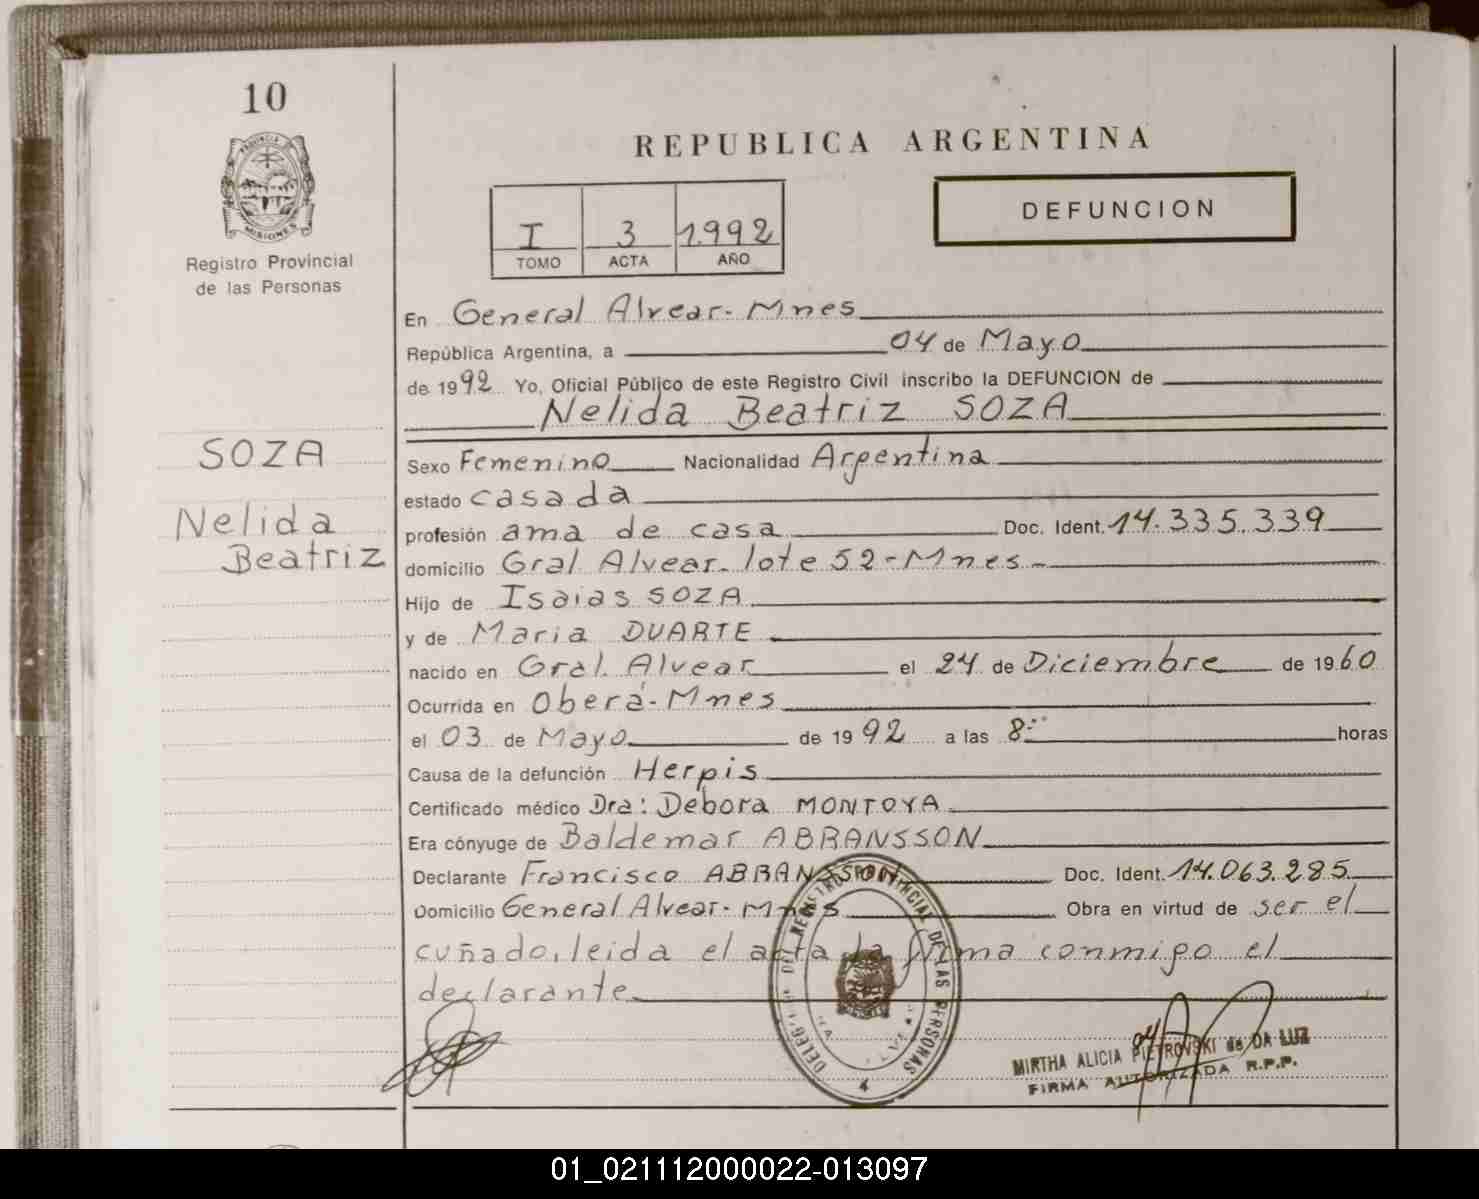 10
PROVINCIA DE
MISIONES
Registro Provincial
de las Personas
REPUBLICA ARGENTINA
I 3 1.992
TOMO ACTA AÑO
DEFUNCION
En General Alvear-Mnes
República Argentina, a 04 de Mayo
de 1992 Yo, Oficial Público de este Registro Civil inscribo la DEFUNCION de
Nelida Beatriz SOZA
SOZA
Nelida
Beatriz
Sexo Femenino Nacionalidad Argentina
estado casada
profesión ama de casa Doc. Ident. 14.335.339
domicilio Gral Alvear-lote 52-Mnes-
Hijo de Isaias SOZA
y de Maria DUARTE
nacido en Gral. Alvear el 24 de Diciembre de 1960
Ocurrida en Oberá-Mnes
el 03 de Mayo de 1992 a las 8:-- horas
Causa de la defunción Herpis
Certificado médico Dra: Debora MONTOYA
Era cónyuge de Baldemar ABRANSSON
Declarante Francisco ABRANSSON Doc. Ident. 14.063.285
Domicilio General Alvear-Mnes Obra en virtud de ser el
cuñado, leida el acta la firma conmigo el
declarante
DEL REGISTRO PROVINCIAL DE LAS PERSONAS
4
MIRTHA ALICIA PIETROVSKI de DA LUZ
FIRMA AUTORIZADA R.P.P.
01_021112000022-013097